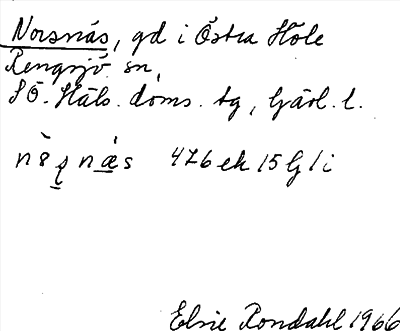 Norsnäs, gd i Östra Höle
Rengsjö sn,
SÖ. Häls. doms. tg, Gävl. l.
476 ek 15 Gli
Elsie Rondahl 1966